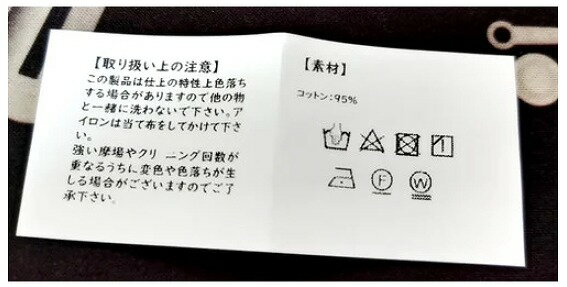 【取り扱い上の注意】
この製品は仕上の特性上色落ち
する場合がありますので他の物
と一緒に洗わないで下さい。ア
イロンは当て布をしてかけて下さ
い。
強い摩場やクリ ニング回数が
重なるうちに変色や色落ちが生
しる場合がございますのでご了
承下さい。
【素材】
コットン:95%
F
W